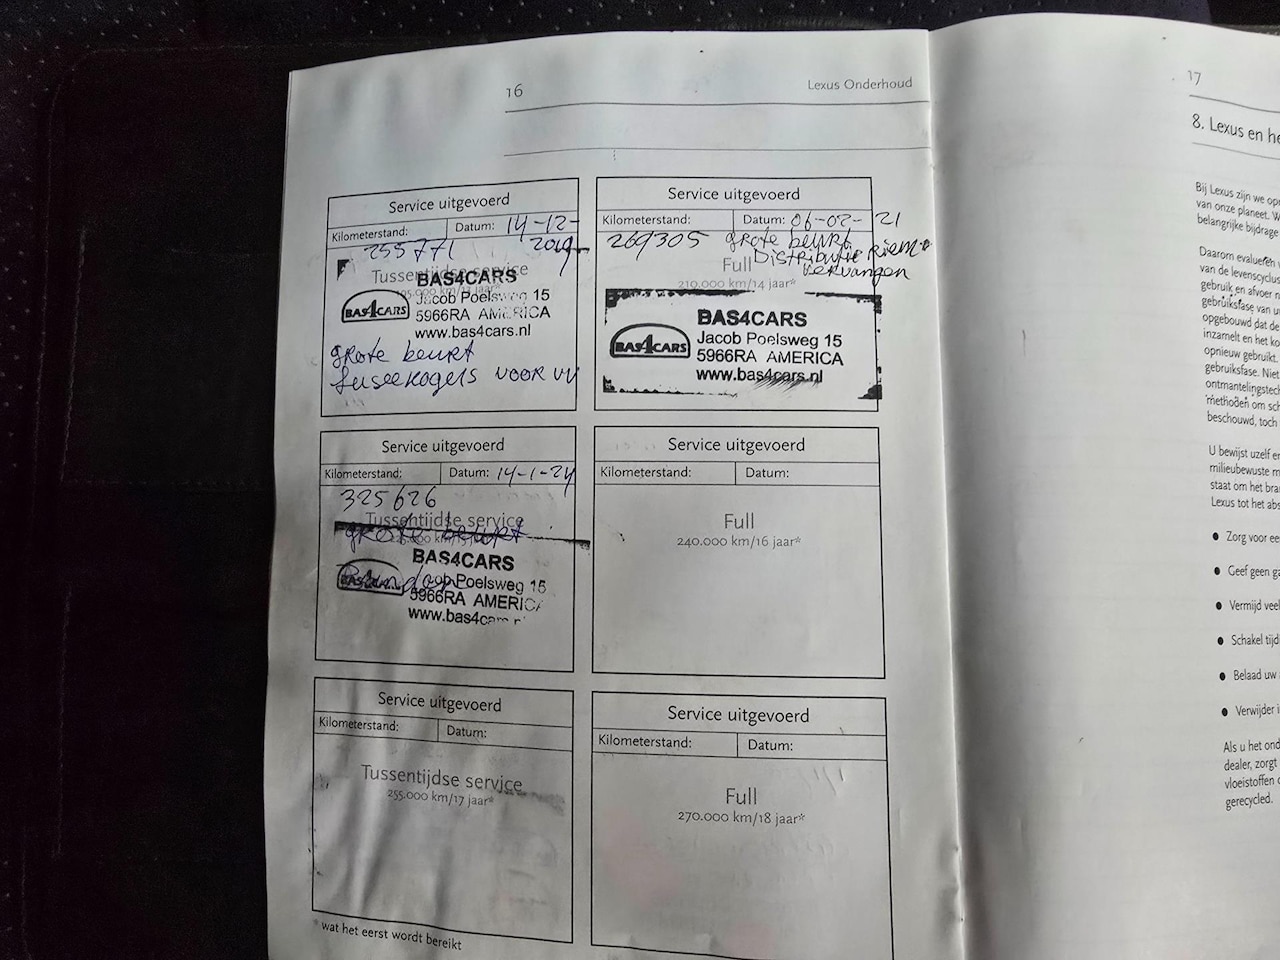 16
Lexus Onderhoud
Service uitgevoerd
Kilometerstand:
Datum: 14-12-
2019
255771
Tussentijdse service
BAS4CARS
Jacob Poelsweg 15
5966RA AMERICA
www.bas4cars.nl
BAS4CARS
grote beurt
fuseekogels voor
Service uitgevoerd
Kilometerstand:
Datum: 06-02-21
269305 grote beurt
Distributie Riem
vervangen
Full
210.000 km/14 jaar*
BAS4CARS
BAS4CARS
Jacob Poelsweg 15
5966RA AMERICA
www.bas4cars.nl
Service uitgevoerd
Kilometerstand:
Datum: 14-1-24
325626
Tussentijdse service
grote beurt
BAS4CARS
Poelsweg 15
5966RA AMERICA
Service uitgevoerd
Kilometerstand:
Datum:
Full
240.000 km/16 jaar*
Service uitgevoerd
Kilometerstand:
Datum:
Tussentijdse service
255.000 km/17 jaar*
Service uitgevoerd
Kilometerstand:
Datum:
Full
270.000 km/18 jaar*
* wat het eerst wordt bereikt
17
8. Lexus en
Bij Lexus zijn we
van onze planeet.
belangrijke bijdrage
Daarom evalueren
van de levenscyclus
gebruik en afvoer
gebruiksfase van
opgebouwd dat de
inzamelt en het
opnieuw gebruikt.
gebruiksfase. Niet
methoden om
beschouwd, toch
U bewijst uzelf
milieubewuste
staat om het
Lexus tot het
• Zorg voor
• Geef geen
• Vermijd
• Schakel
• Belaad uw
• Verwijder
Als u het
dealer, zorgt
vloeistoffen
gerecycled.